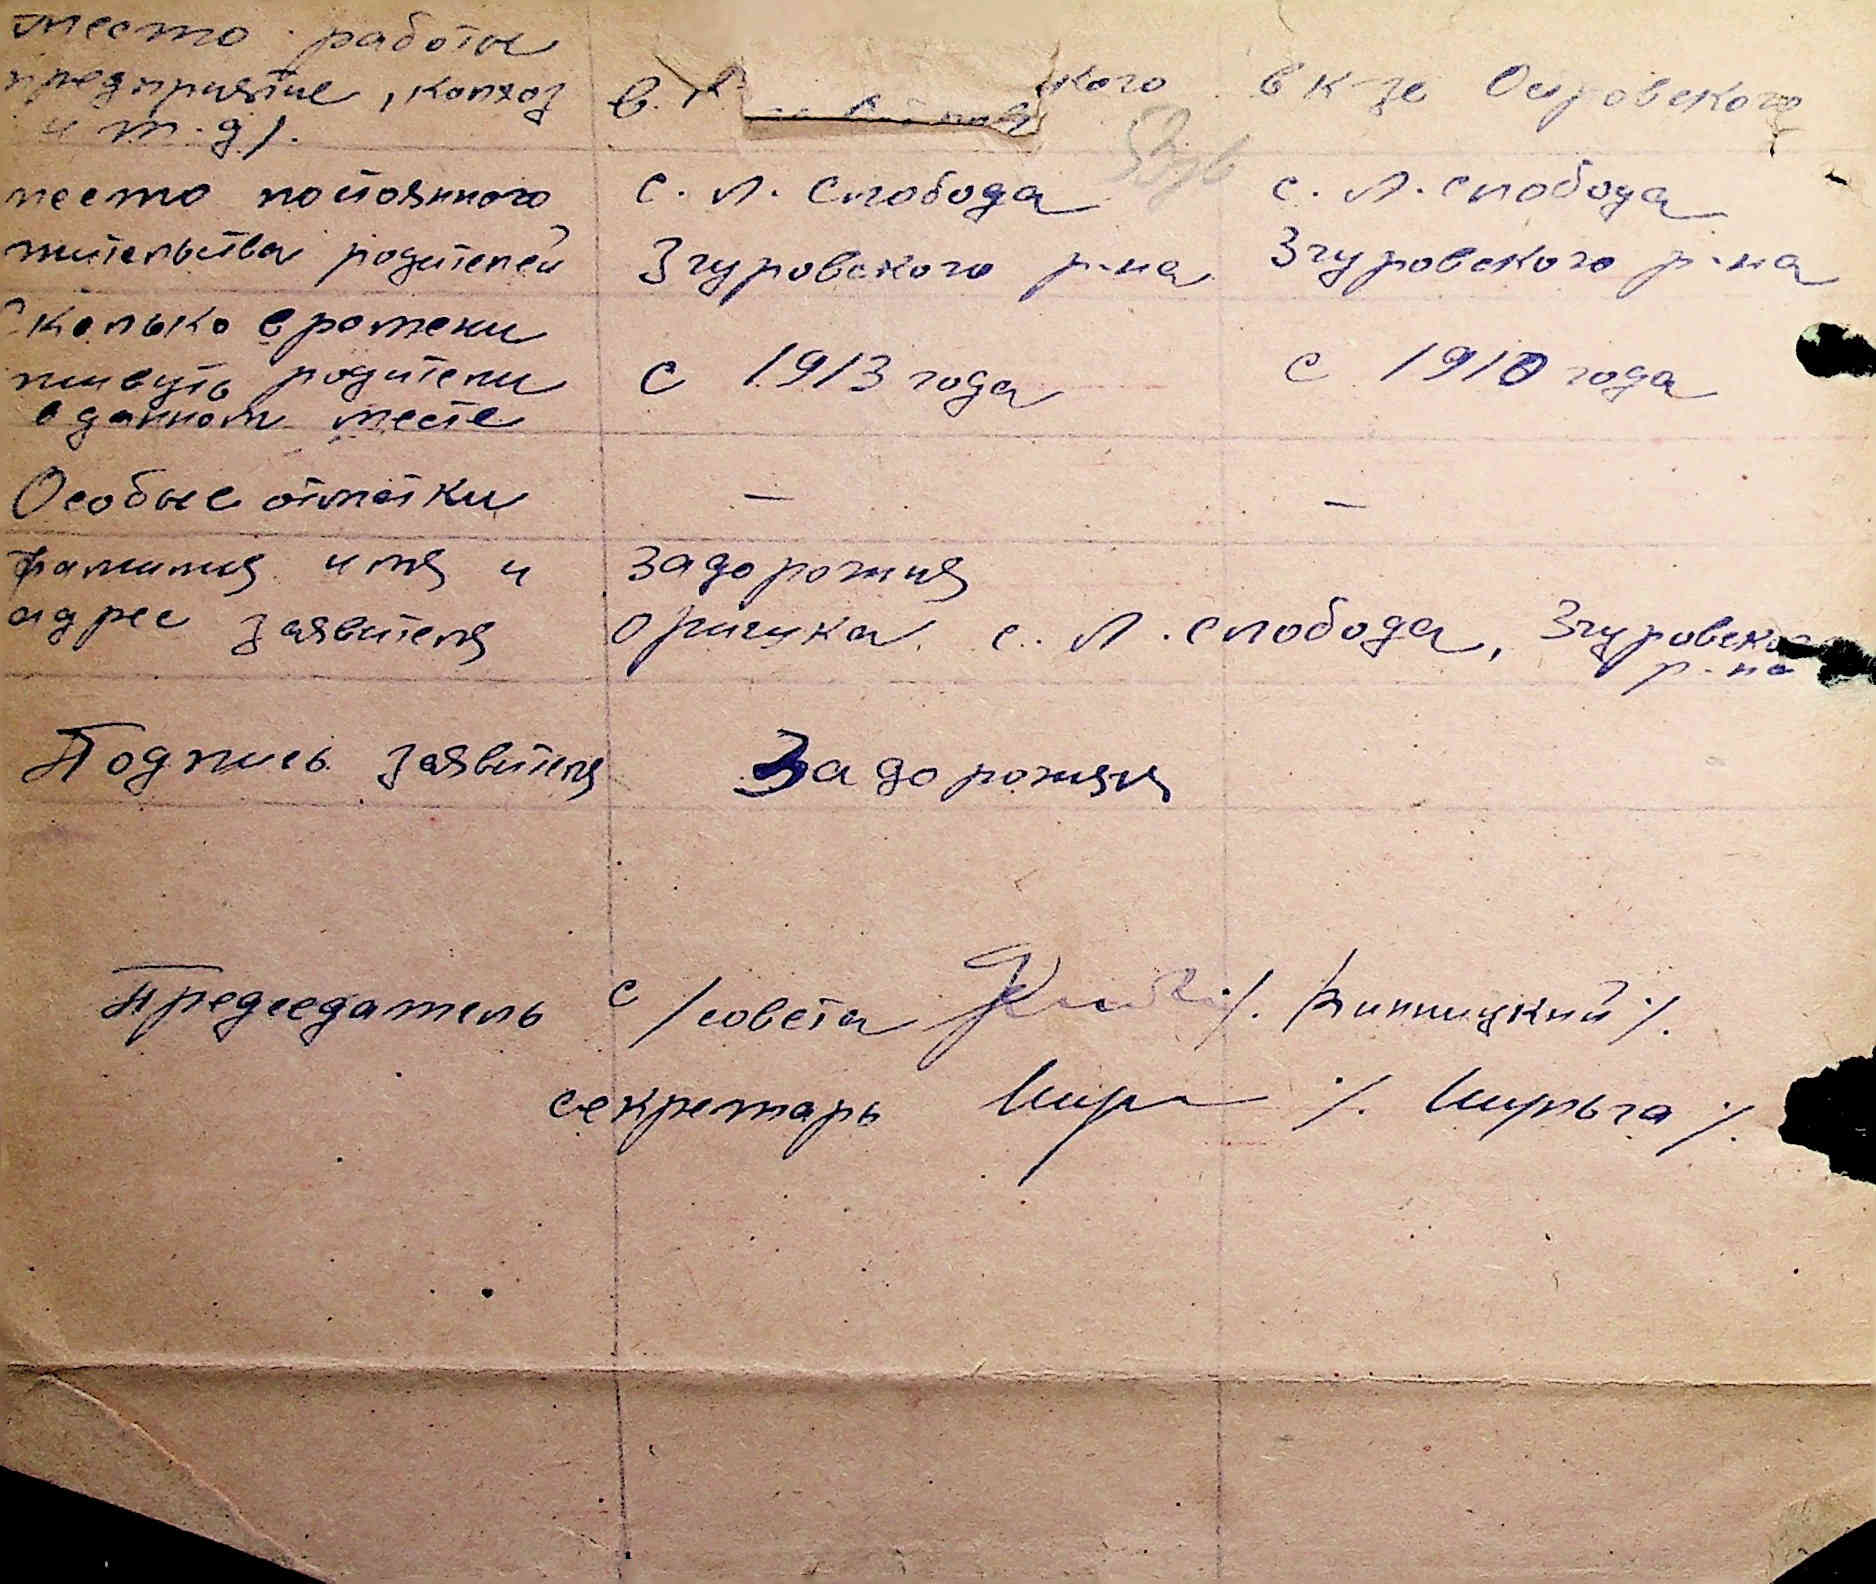 место работы
предприятие, колхоз
и т.д).
в к кого
в к-зе Островского
место постоянного
жительства родителей
с. Л. Слобода
Згуровского р-на
с. Л. слобода
Згуровского р-на
Сколько времени
живуть родители
в данном месте
с 1913 года
с 1910 года
Особые отметки
—
—
фамилия имя и
адрес заявителя
Задорожня
Оришка с. Л. слобода, Згуровског
р-на
Подпись заявителя
Задорожня
Председатель с/совета /. Винницкий /.
секретарь /. Шульга /.